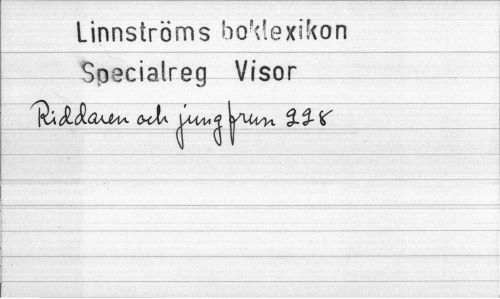 Linnströms boklexikon
Specialreg Visor
Riddaren och jungfrun 228